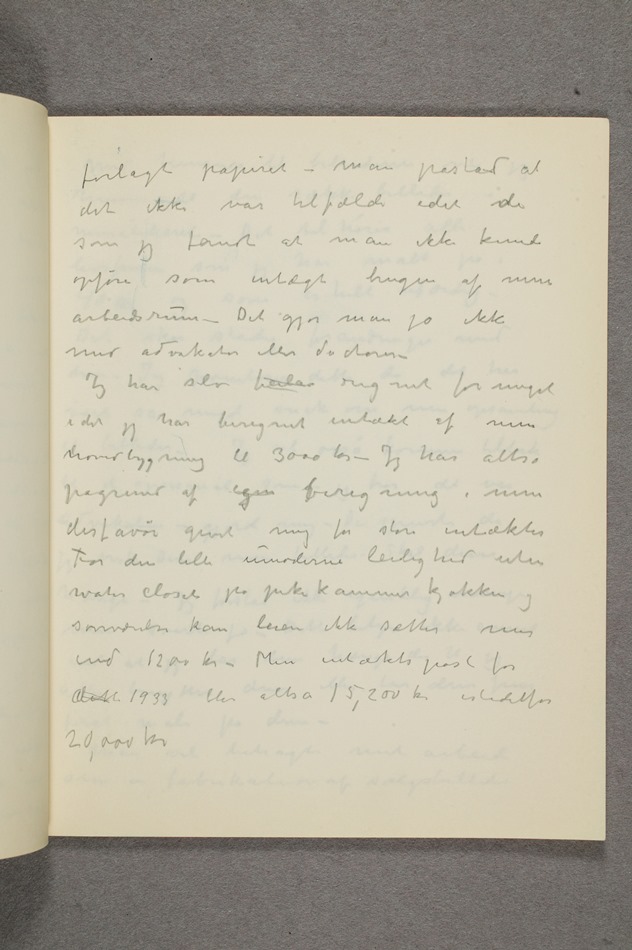 forlagt papiret – man påstod at
det ikke var tilfælde idet de
som jeg fandt at man ikke kunde
opføre som intægt brugen af mine
arbeidsrum – Det gjør man jo ikke
med advokater eller doctorer –
Jeg har selv regnet for meget
idet jeg har beregnet intækt af min
hovedbygning til 3000 kr – Jeg har altså
pågrund af egen beregning i min
disfavør givet mig for store intækter
For den lille umoderne leilighed uten
water closet på pikekammer kjøkken og
soveværelse kan leien ikke sættes mer
end 1200 kr – Min intæktspost for
1933 blir altså 15,200 kr istedetfor
20,000 kr